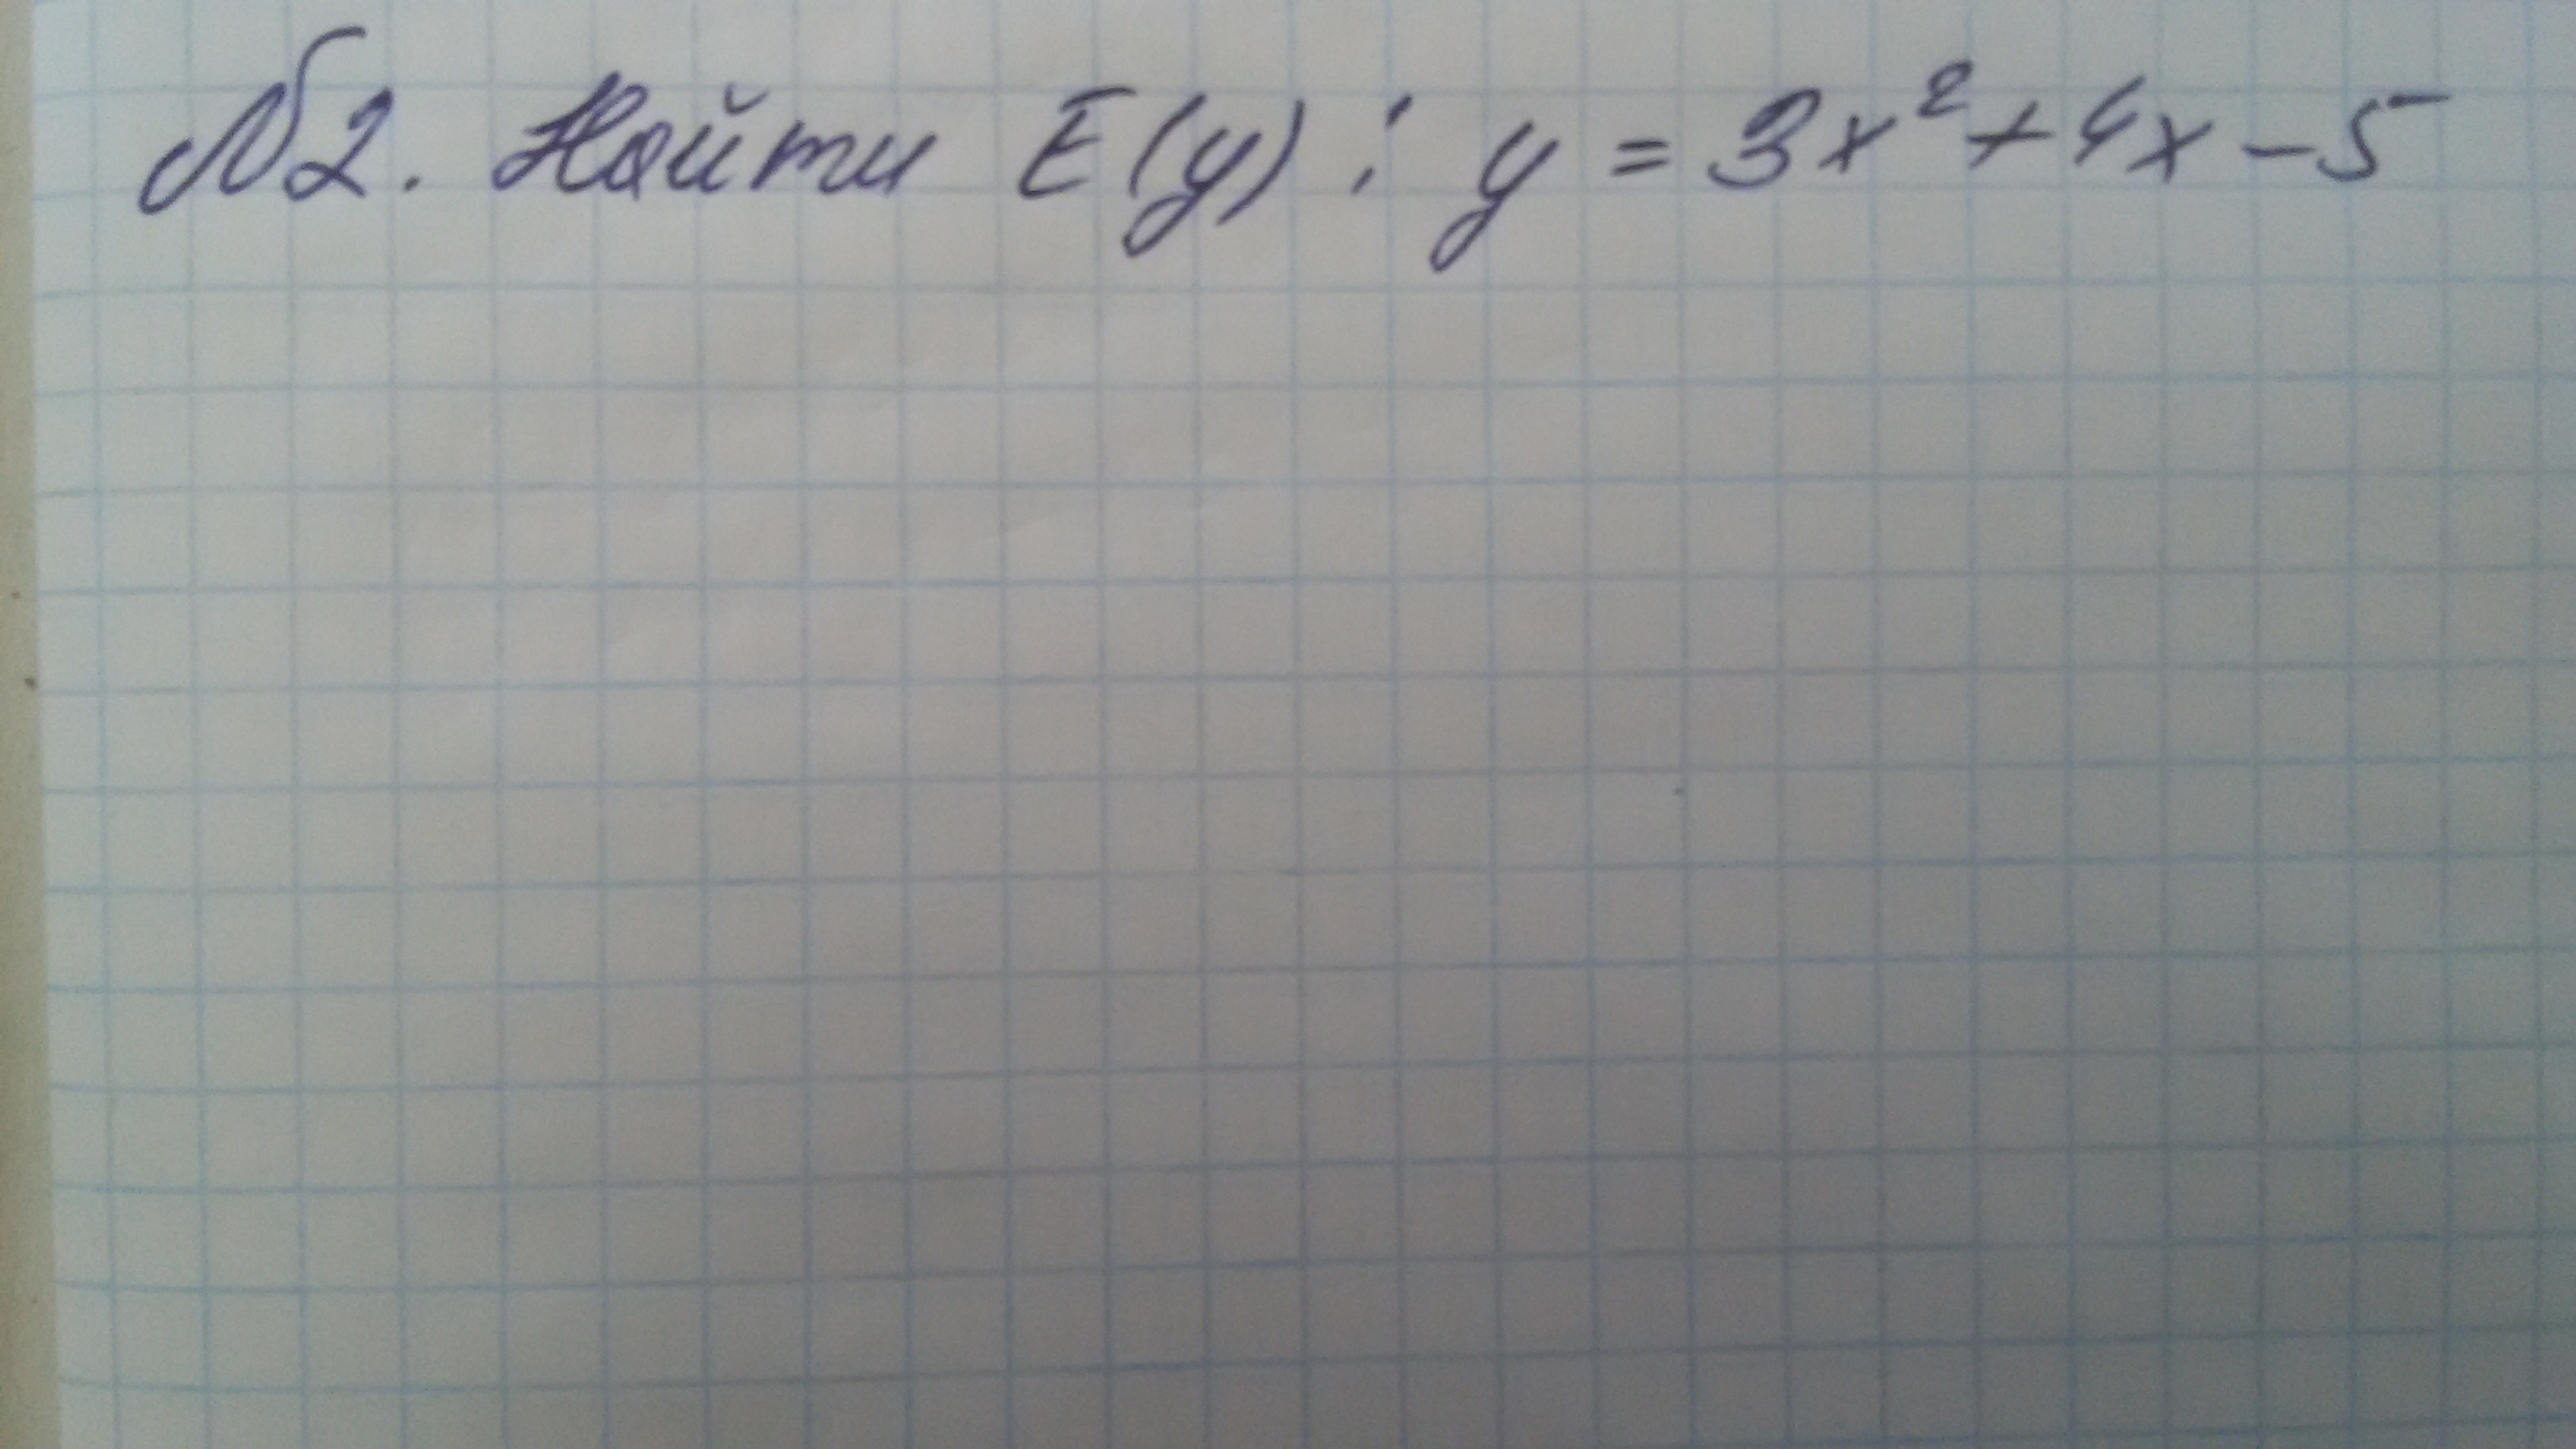 №2. Найти E(y): y = 3x²+4x-5